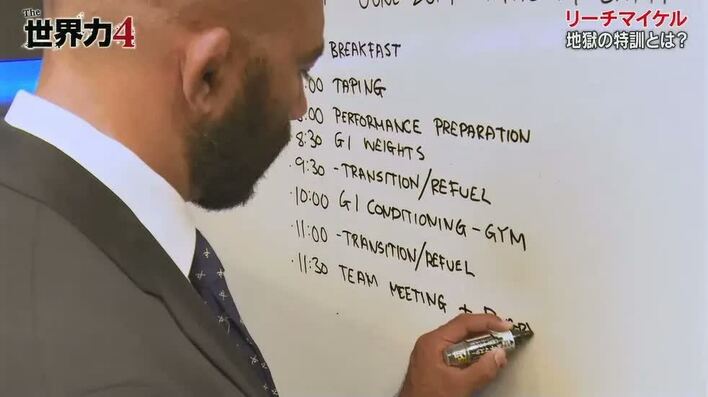 The
世界力4
リーチマイケル
地獄の特訓とは?
BREAKFAST
:00 TAPING
:00 PERFORMANCE PREPARATION
8:30 G1 WEIGHTS
9:30 -TRANSITION/REFUEL
·10:00 G1 CONDITIONING-GYM
·11:00 -TRANSITION/REFUEL
·11:30 TEAM MEETING +